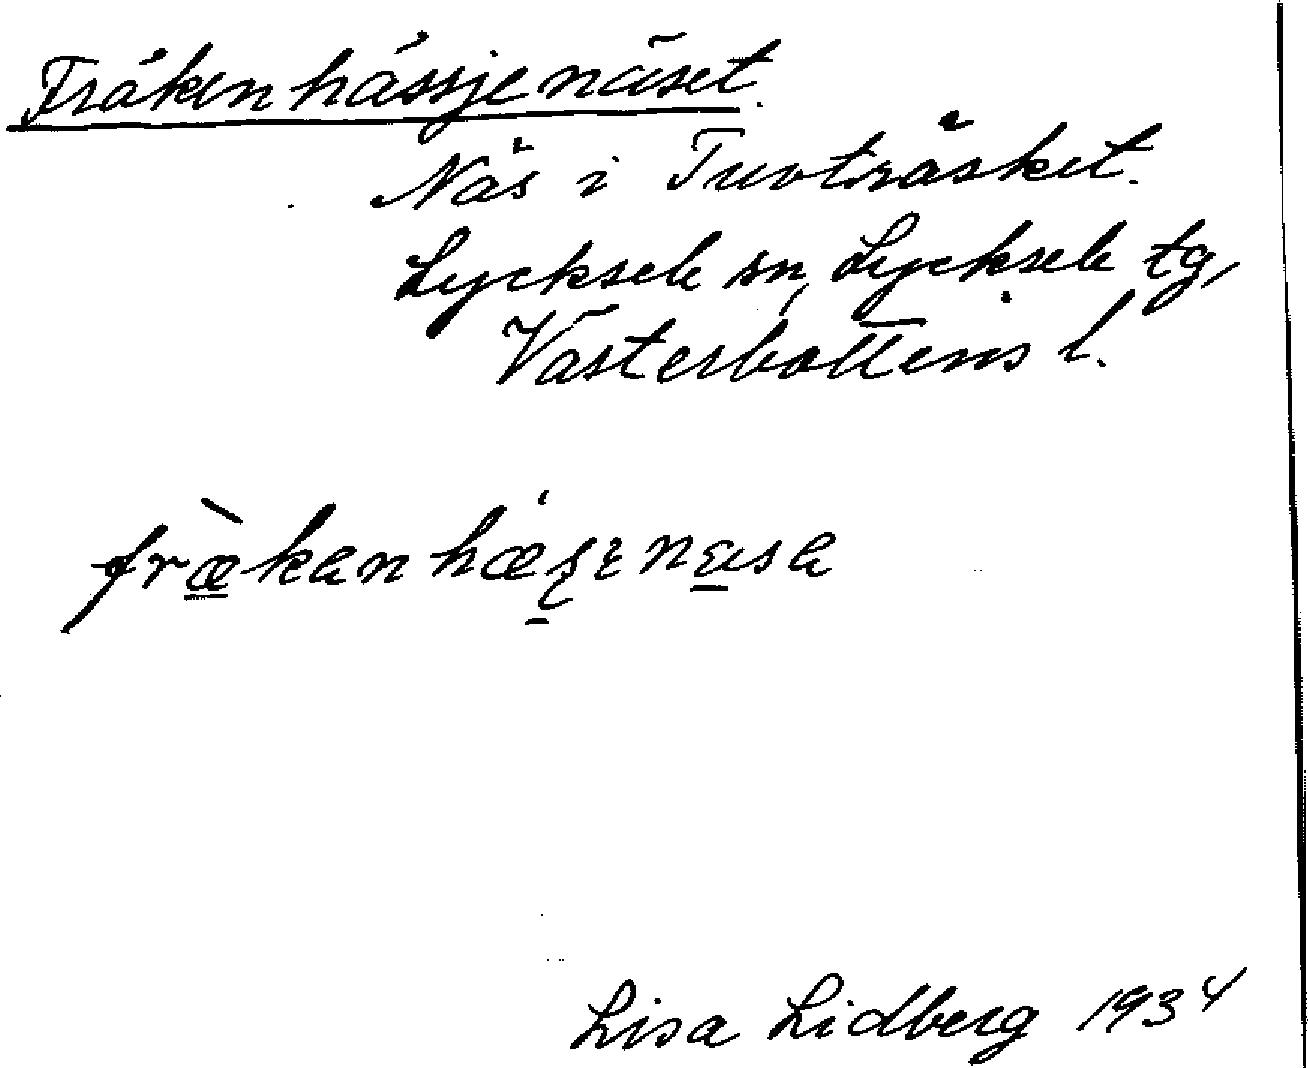 Fräkenhässjenäset.
Näs i Tuvträsket.
Lycksele sn, Lycksele tg,
Västerbottens l.
Lisa Lidberg 1934